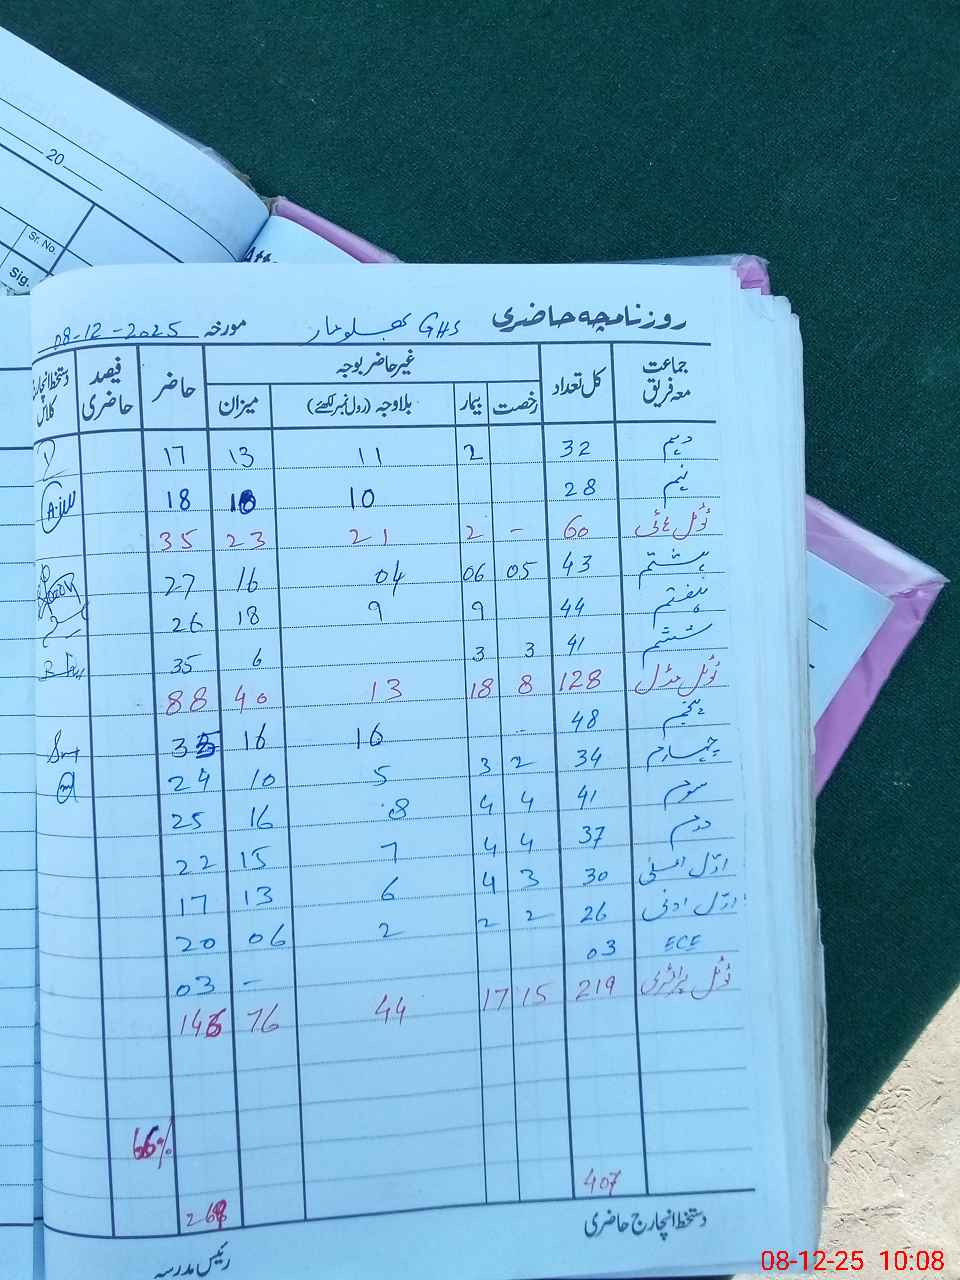 20
Sr. No.
Sig.
Att
روزنامچہ حاضری
GHS بھلومار
مورخہ 08-12-2025
جماعت معہ فریق
کل تعداد
غیر حاضر بوجہ
رخصت
بیمار
بلاوجہ (رول نمبر لکھئے)
میزان
حاضر
فیصد حاضری
دستخط انچارج کلاس
دہم 32 2 11 13 17
نہم 28 10 10 18
ٹوٹل ہائی 60 - 2 21 23 35
ہشتم 43 05 06 04 16 27
ہفتم 44 9 9 18 26
ششم 41 3 3 6 35
ٹوٹل مڈل 128 8 18 13 40 88
پنجم 48 16 16 35
چہارم 34 2 3 5 10 24
سوم 41 4 4 8 16 25
دوم 37 4 4 7 15 22
اوّل اعلیٰ 30 3 4 6 13 17
اوّل ادنیٰ 26 2 2 2 06 20
ECE 03 - 03
ٹوٹل پرائمری 219 15 17 44 76
66%
407
دستخط انچارج حاضری
رئیس مدرسہ
08-12-25 10:08